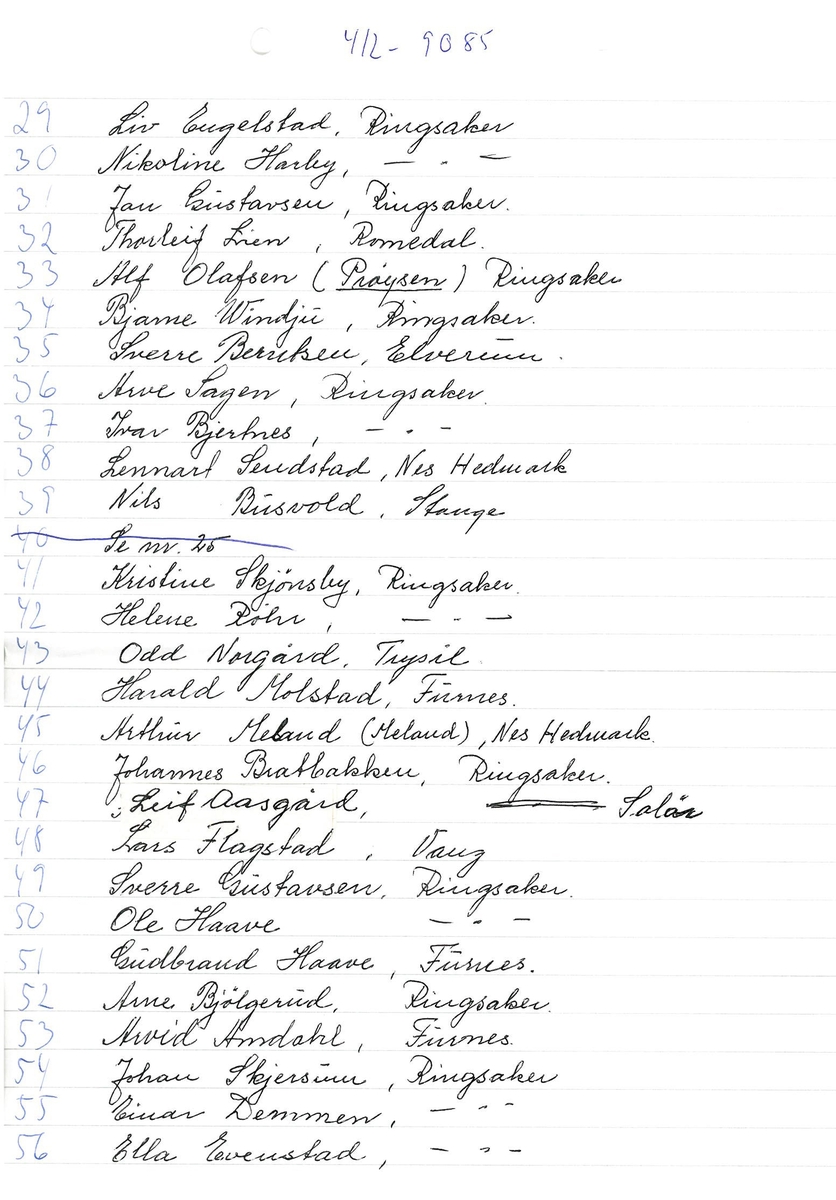 4/2 - 9085
29 Liv Engelstad, Ringsaker
30 Nikoline Harby, — " —
31 Jan Gustavsen, Ringsaker.
32 Thorleif Lien, Romedal.
33 Alf Olafsen (Prøysen) Ringsaker
34 Bjarne Windju, Ringsaker.
35 Sverre Berntsen, Elverum.
36 Arve Sagen, Ringsaker.
37 Ivar Bjertnes, — " —
38 Lennart Sendstad, Nes Hedmark
39 Nils Busvold, Stange
40 Se nr. 25
41 Kristine Skjönsby, Ringsaker.
42 Helene Röhr, — " —
43 Odd Norgård, Trysil.
44 Harald Molstad, Furnes.
45 Arthur Meland (Meland), Nes Hedmark.
46 Johannes Bratbakken, Ringsaker.
47 Leif Aasgård, Solör
48 Lars Flagstad, Vang
49 Sverre Gustavsen, Ringsaker.
50 Ole Haave — " —
51 Gudbrand Haave, Furnes.
52 Arne Bjölgerud, Ringsaker.
53 Arvid Amdahl, Furnes.
54 Johan Skjersum, Ringsaker
55 Einar Demmen, — " —
56 Ella Evenstad, — " —